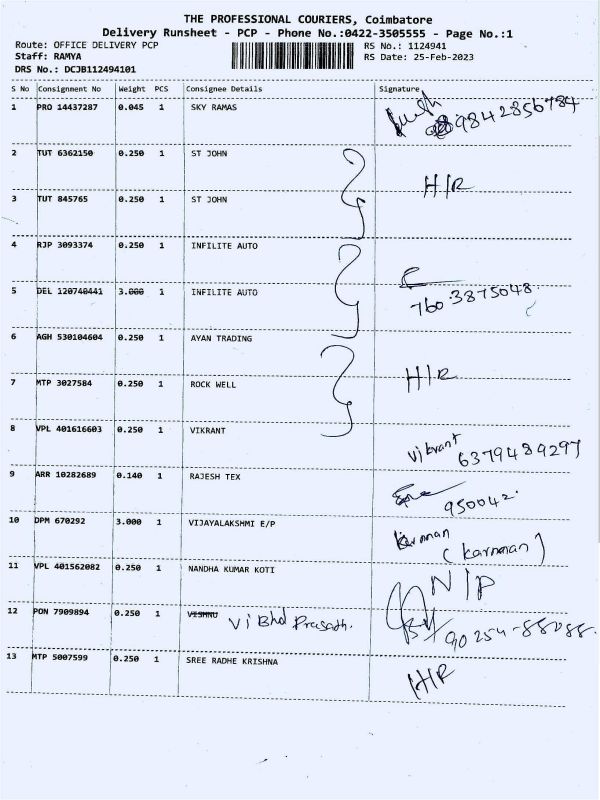 THE PROFESSIONAL COURIERS, Coimbatore
Delivery Runsheet - PCP - Phone No.:0422-3505555 - Page No.:1
Route: OFFICE DELIVERY PCP RS No.: 1124941
Staff: RAMYA RS Date: 25-Feb-2023
DRS No.: DCJB112494101
S No Consignment No Weight PCS Consignee Details Signature
1 PRO 14437287 0.045 1 SKY RAMAS 9842856784
2 TUT 6362150 0.250 1 ST JOHN H/R
3 TUT 845765 0.250 1 ST JOHN
4 RJP 3093374 0.250 1 INFILITE AUTO
5 DEL 120740441 3.000 1 INFILITE AUTO 760 3875048.
6 AGH 530104604 0.250 1 AYAN TRADING
7 MTP 3027584 0.250 1 ROCK WELL H/R
8 VPL 401616603 0.250 1 VIKRANT Vikrant 6379489297
9 ARR 10282689 0.140 1 RAJESH TEX 950042.
10 DPM 670292 3.000 1 VIJAYALAKSHMI E/P Karman (Karnman)
11 VPL 401562082 0.250 1 NANDHA KUMAR KOTI N/P
12 PON 7909894 0.250 1 VISHNU Prasadh. 90254-88088.
13 MTP 5007599 0.250 1 SREE RADHE KRISHNA H/R